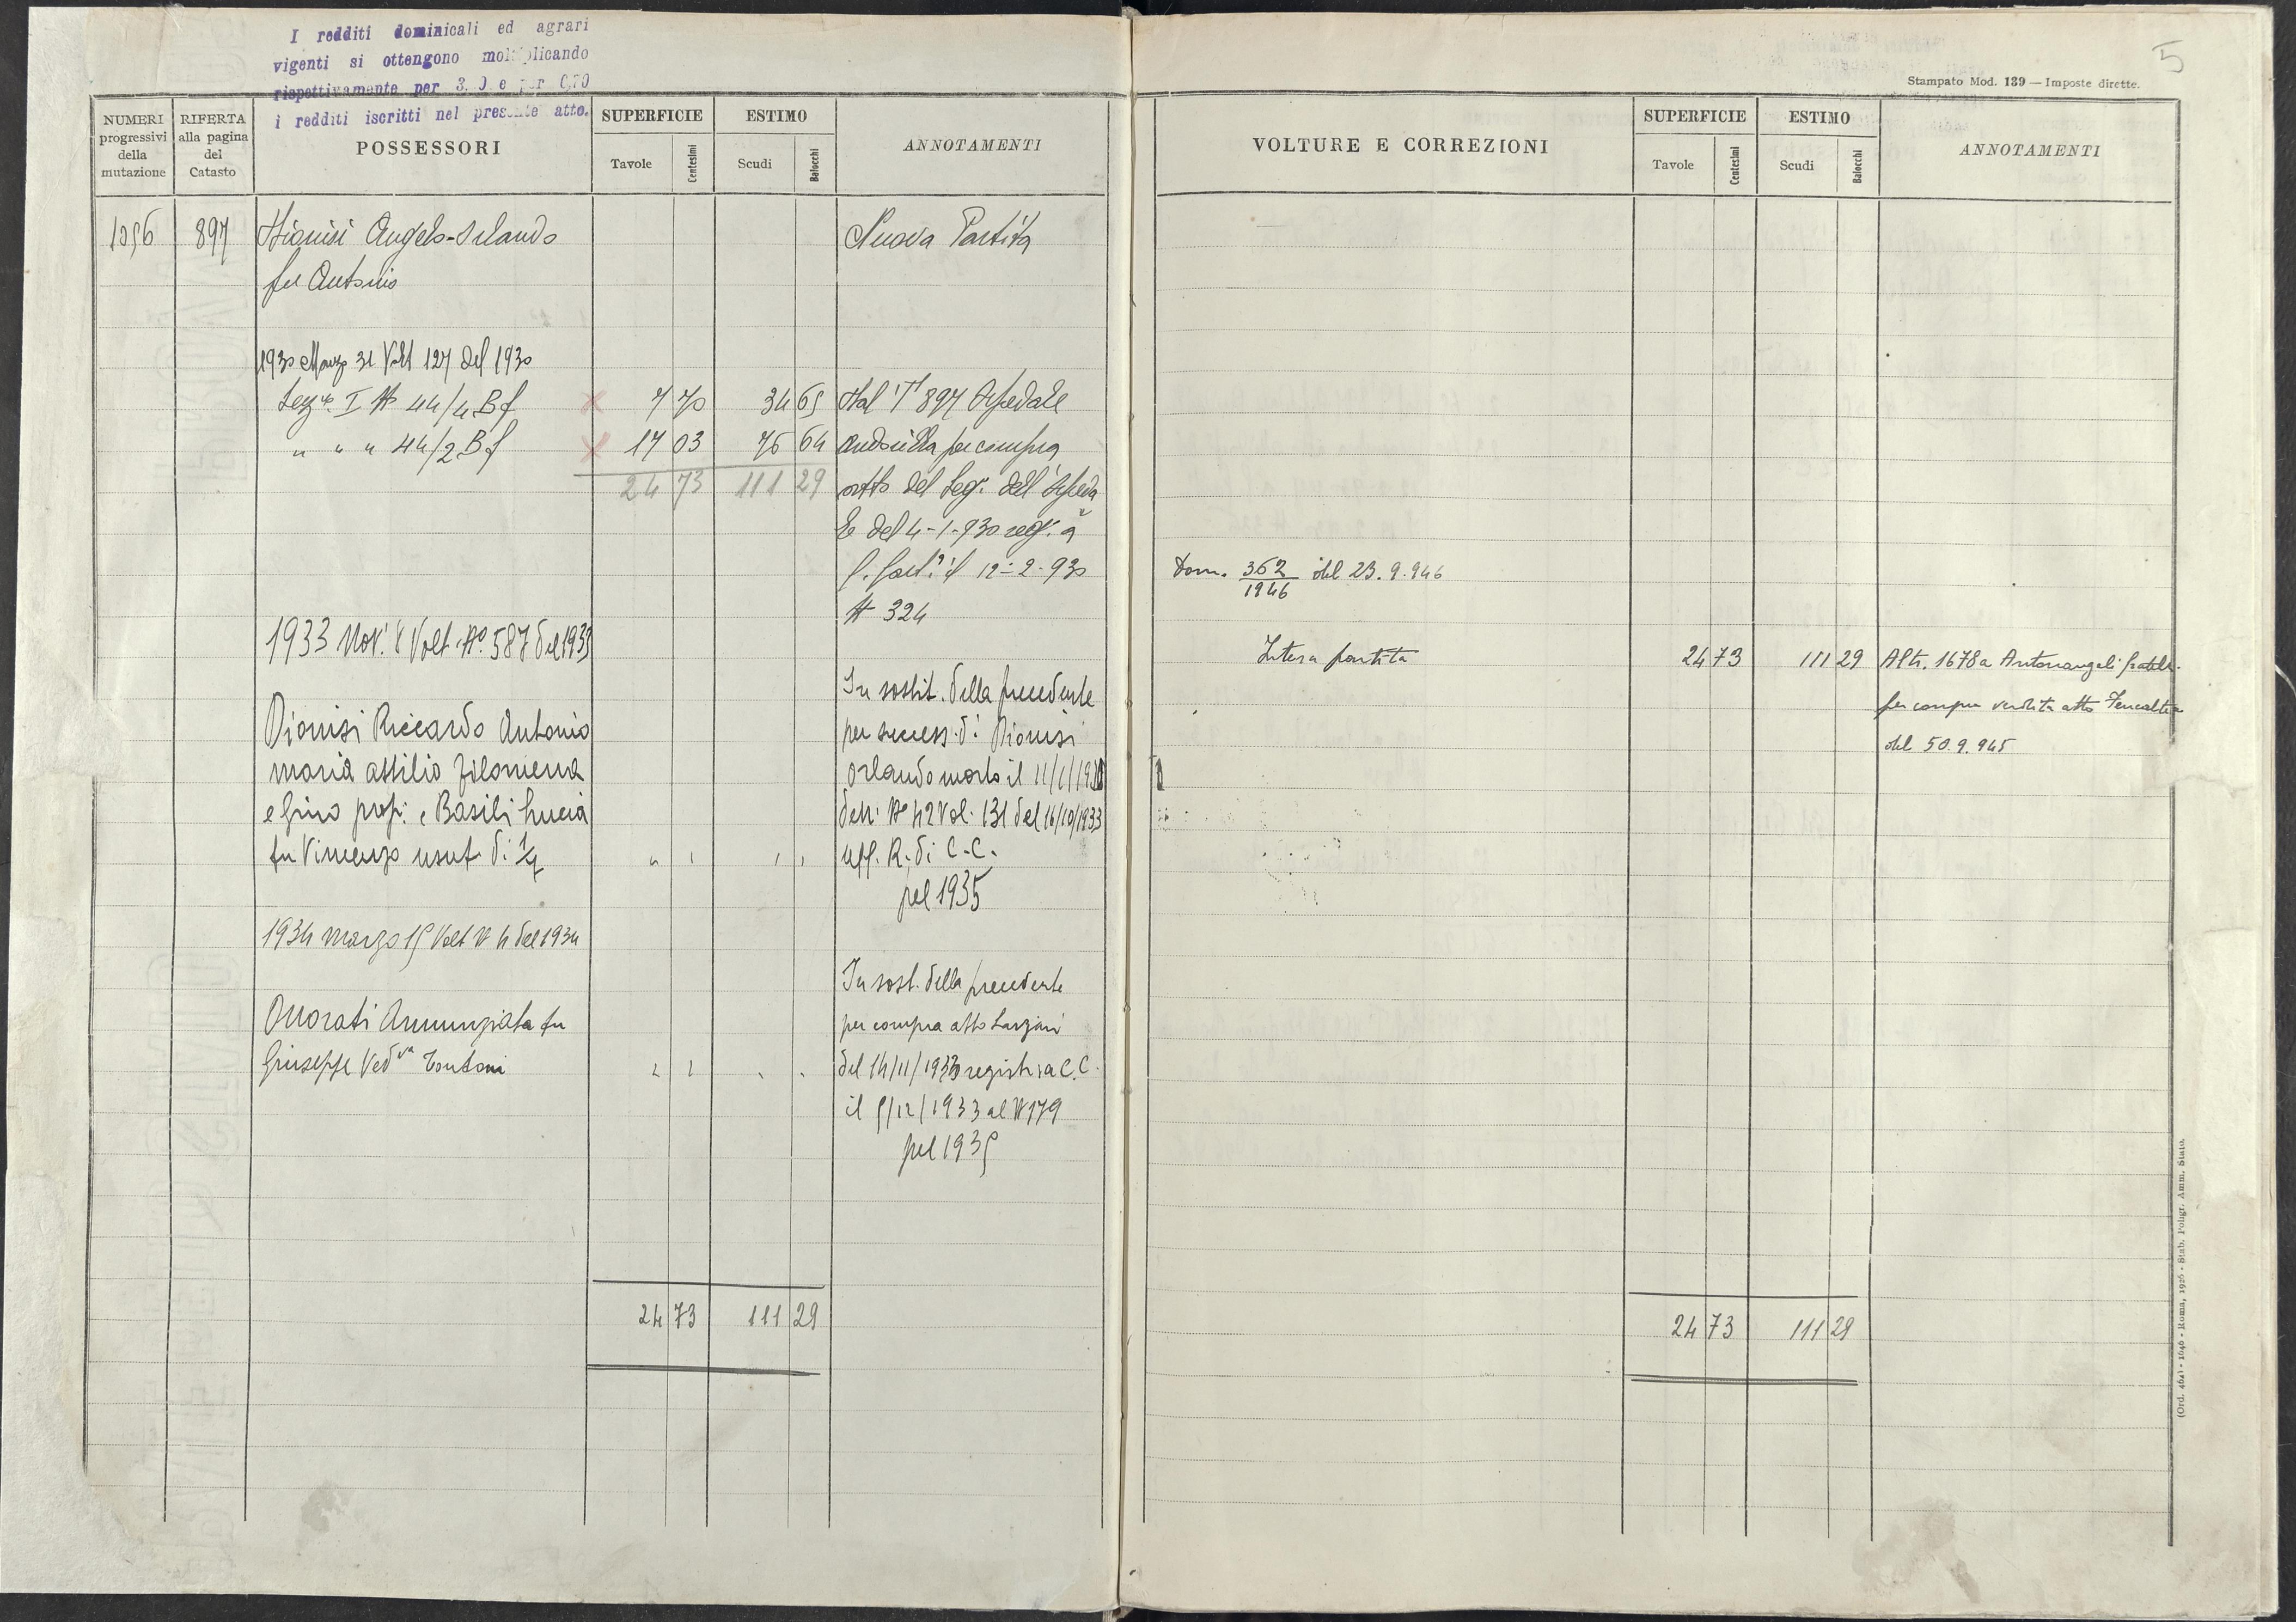 I redditi dominicali ed agrari
vigenti si ottengono moltiplicando
rispettivamente per 3. 0 e per 0,70
i redditi iscritti nel presente atto.
NUMERI progressivi della mutazione
RIFERTA alla pagina del Catasto
POSSESSORI
SUPERFICIE
Tavole Centesimi
ESTIMO
Scudi Baiocchi
ANNOTAMENTI
1056 897 Dionisi Angelo-Orlando Nuova Partita
fu Antonio
1930 Marzo 31 Volt 127 del 1930
Sez.e I N 44/4 Bf 7 70 34 65 Dal T 897 Ospedale
" " " 44/2 Bf 17 03 76 64 per compra
24 73 111 29 atto del Seg. dell'Ospeda
le del 4-1-930 reg. a
il 12-2-930
N 324
1933 Nov. 8 Volt. No. 587 del 1933
In sostit. della precedente
Dionisi Riccardo Antonio per success. di Dionisi
Maria Attilio Filomena Orlando morto il 11/1/19
e Gino prop. e Basili Lucia den. No 42 Vol. 131 del 16/10/1933
fu Vincenzo usuf. di 1/4 " " " " uff. R. di C.C.
pel 1935
1934 Marzo 15 Volt N 4 del 1934
In sost. della precedente
Onorati Annunziata fu per compra atto
Giuseppe Ved.va Tontoni " " " " del 14/11/1933 registr. a C.C.
il 5/12/1933 al N 179
pel 1935
24 73 111 29
5
Stampato Mod. 139 — Imposte dirette.
VOLTURE E CORREZIONI
SUPERFICIE
Tavole Centesimi
ESTIMO
Scudi Baiocchi
ANNOTAMENTI
Dom. 362/1946 del 23.9.946
Intera partita 24 73 111 29 Alla p. 1678 a Antonangeli fratelli
per compra vendita atto
del 30.9.945
24 73 111 29
(Ord. 464) - 1646 - Roma, 1926 - Stab. Poligr. Amm. Stato.